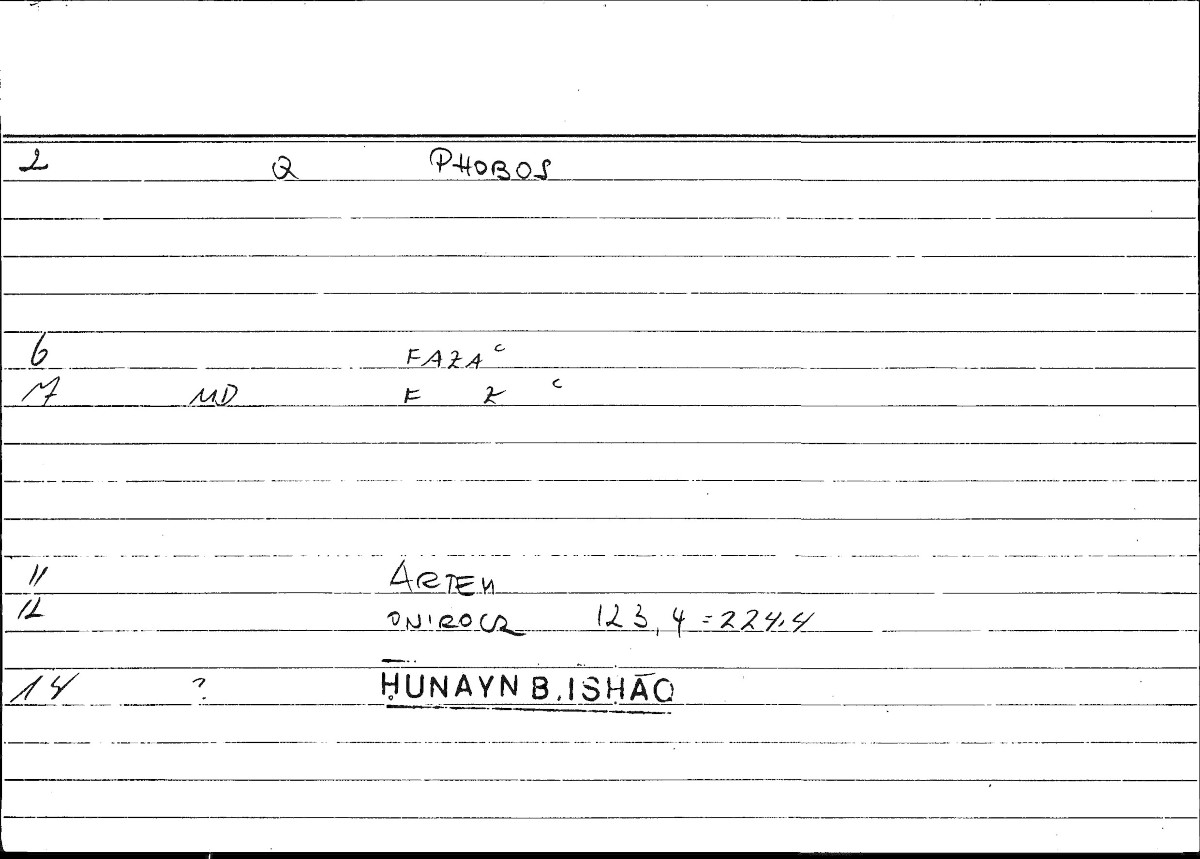 2 Q PHOBOS
6 FAZAᶜ
7 MD F Z ᶜ
11 ARTEM
12 ONIROCR 123,4=224,4
14 ? ḤUNAYN B. ISḤĀQ